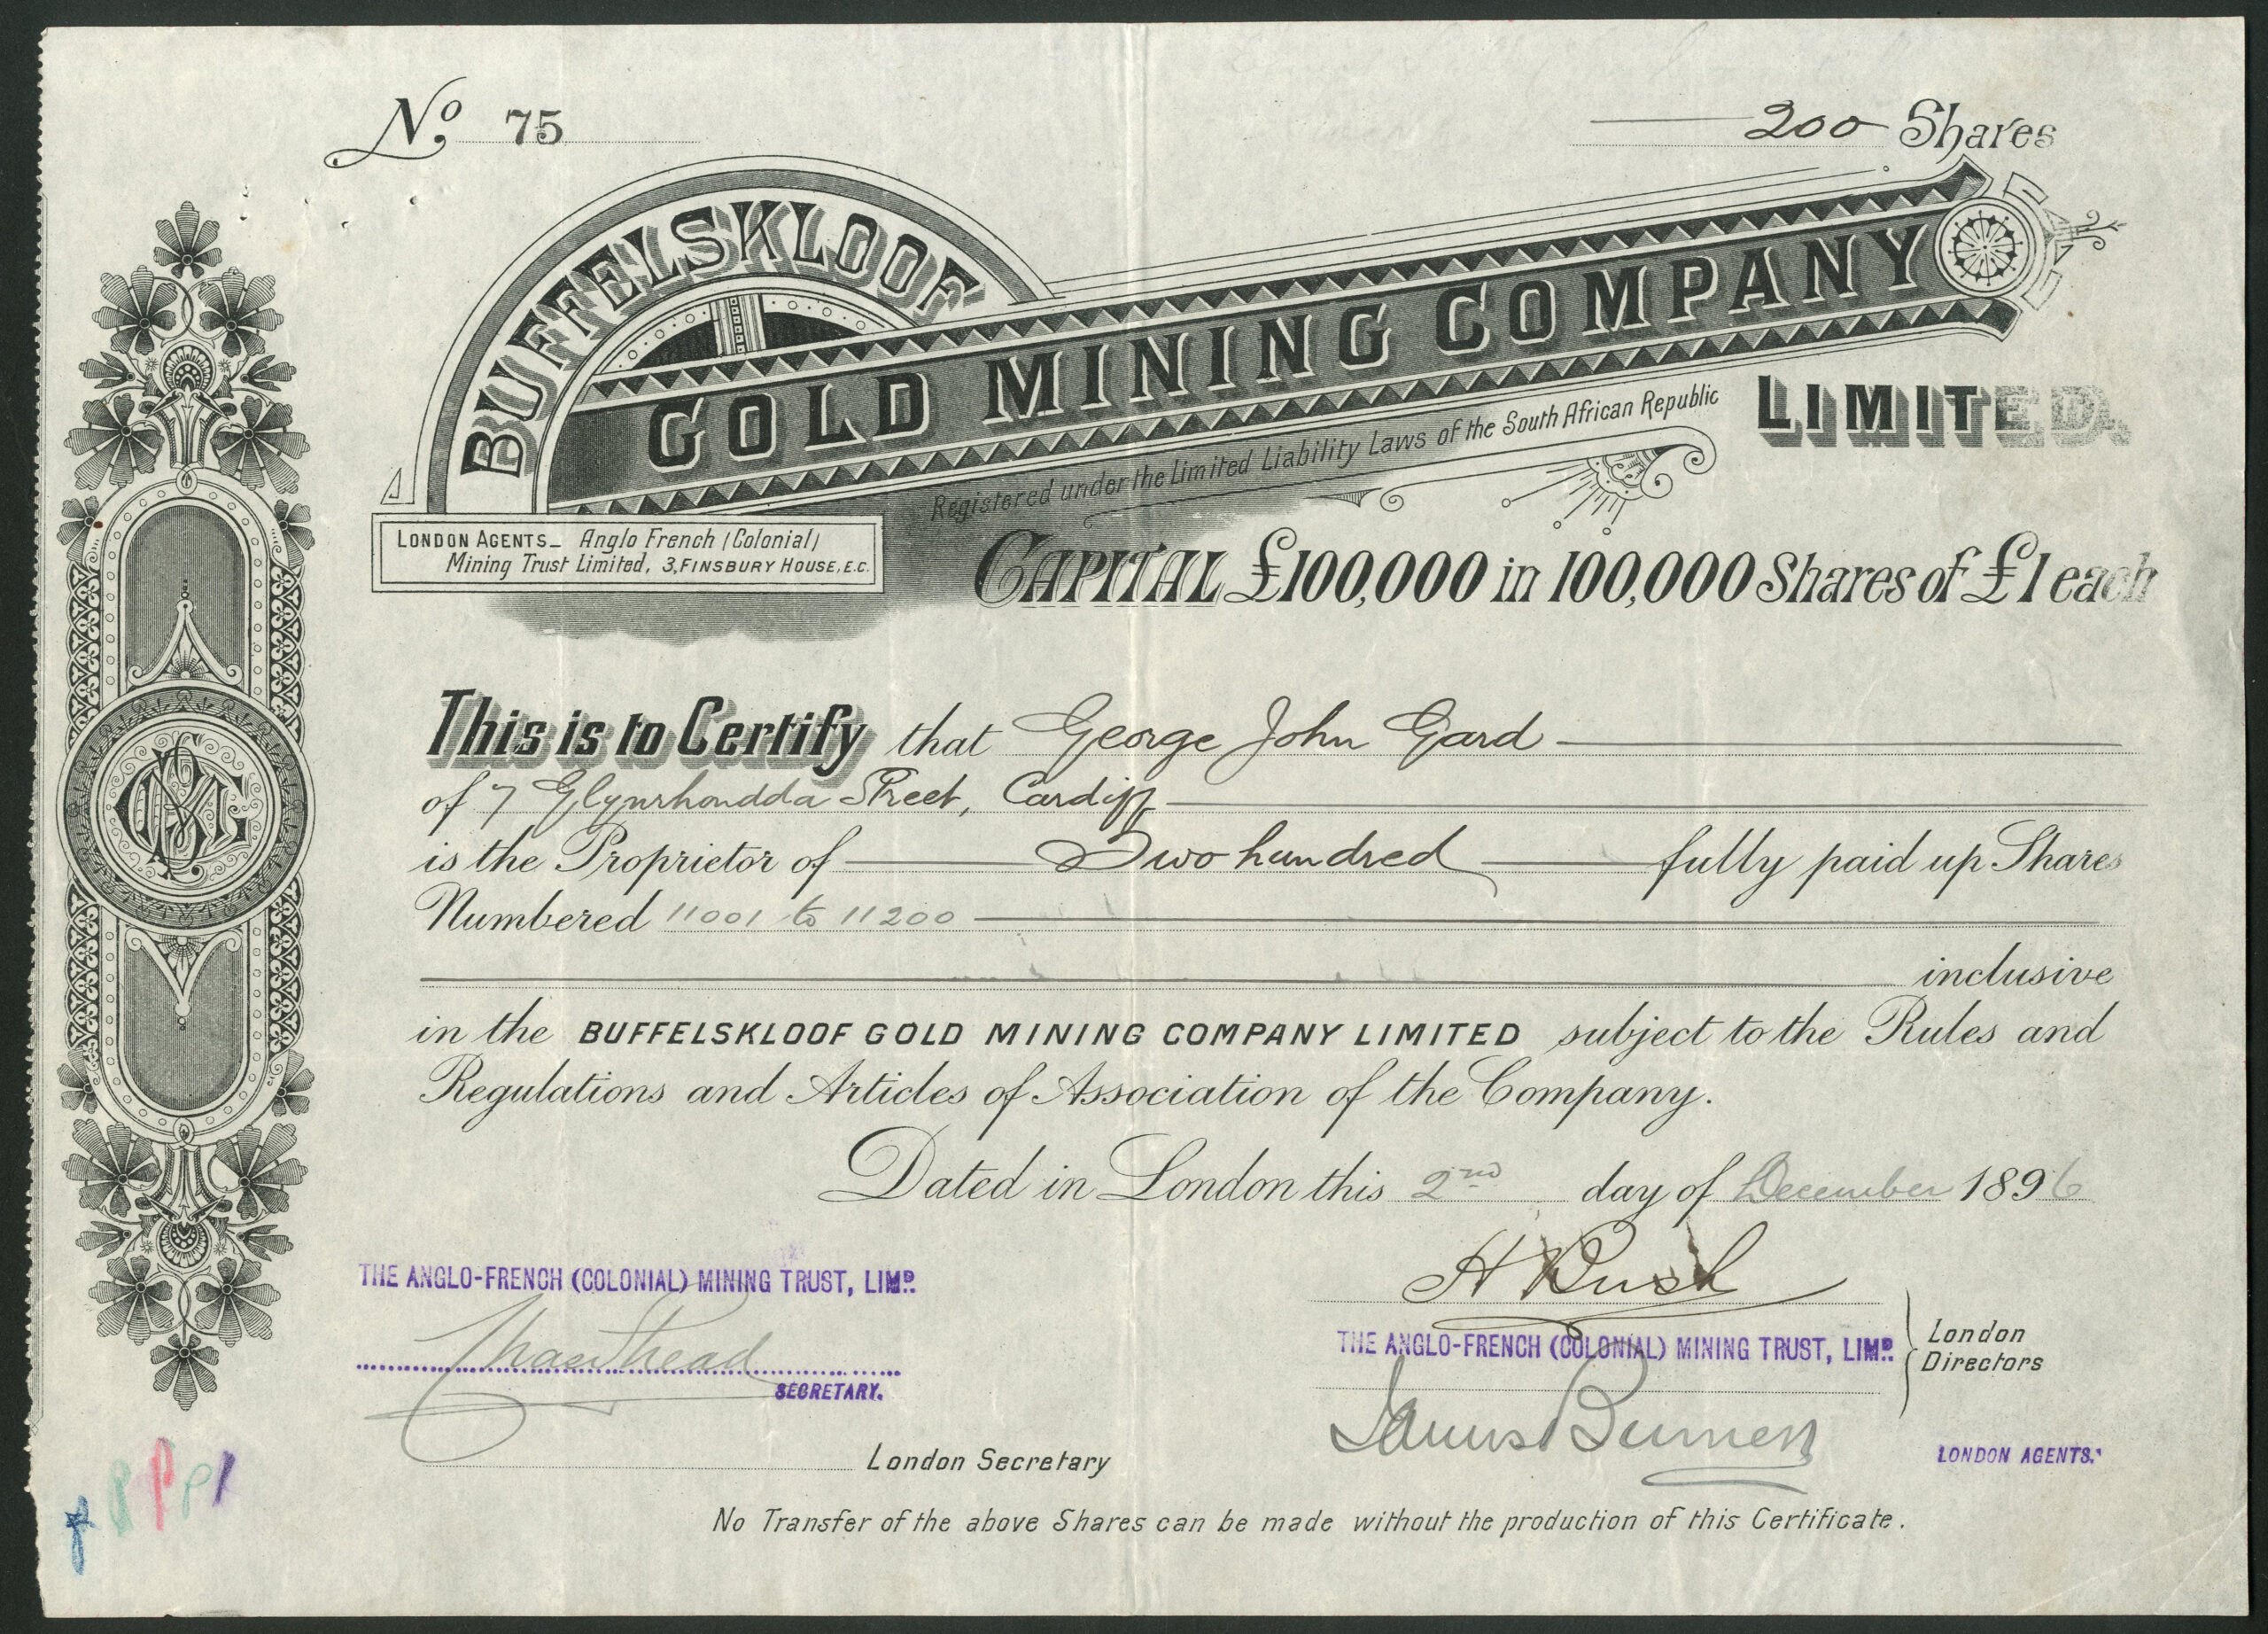 No 75
200 Shares
BUFFELSKLOOF
GOLD MINING COMPANY
LIMITED.
Registered under the Limited Liability Laws of the South African Republic
LONDON AGENTS_ Anglo French (Colonial)
Mining Trust Limited, 3, FINSBURY HOUSE, E.C.
CAPITAL £100,000 in 100,000 Shares of £1 each
This is to Certify that George John Gard
of 7 Glynrhondda Street, Cardiff
is the Proprietor of Two hundred fully paid up Shares
Numbered 11001 to 11200
inclusive
in the BUFFELSKLOOF GOLD MINING COMPANY LIMITED subject to the Rules and
Regulations and Articles of Association of the Company.
Dated in London this 2nd day of December 1896
H Bush
THE ANGLO-FRENCH (COLONIAL) MINING TRUST, LIMD.
THE ANGLO-FRENCH (COLONIAL) MINING TRUST, LIMD.
London
Directors
SECRETARY.
London Secretary
LONDON AGENTS.
No Transfer of the above Shares can be made without the production of this Certificate.